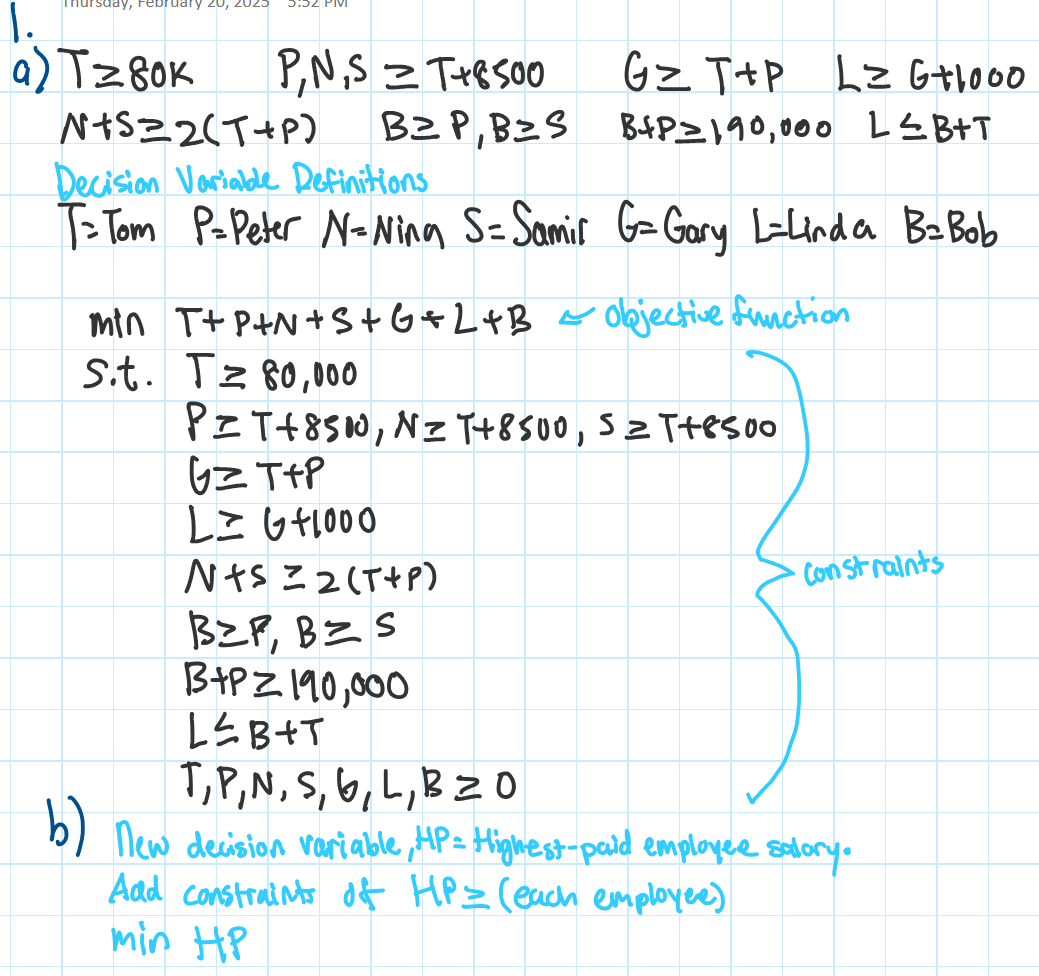 Thursday, February 20, 2025 5:52 PM
1.
a) T≥80K P,N,S ≥ T+8500 G≥ T+P L≥ G+1000
N+S≥2(T+P) B≥P, B≥S B+P≥190,000 L≤B+T
Decision Variable Definitions
T=Tom P=Peter N=Nina S=Samir G=Gary L=Linda B=Bob
min T+P+N+S+G+L+B ← objective function
s.t. T≥ 80,000
P≥T+8500, N≥T+8500, S≥T+8500
G≥T+P
L≥ G+1000
N+S ≥ 2(T+P)
constraints
B≥P, B≥ S
B+P≥190,000
L≤B+T
T,P,N,S,G,L,B ≥ 0
b) New decision variable, HP= Highest-paid employee salary.
Add constraints of HP≥(each employee)
min HP